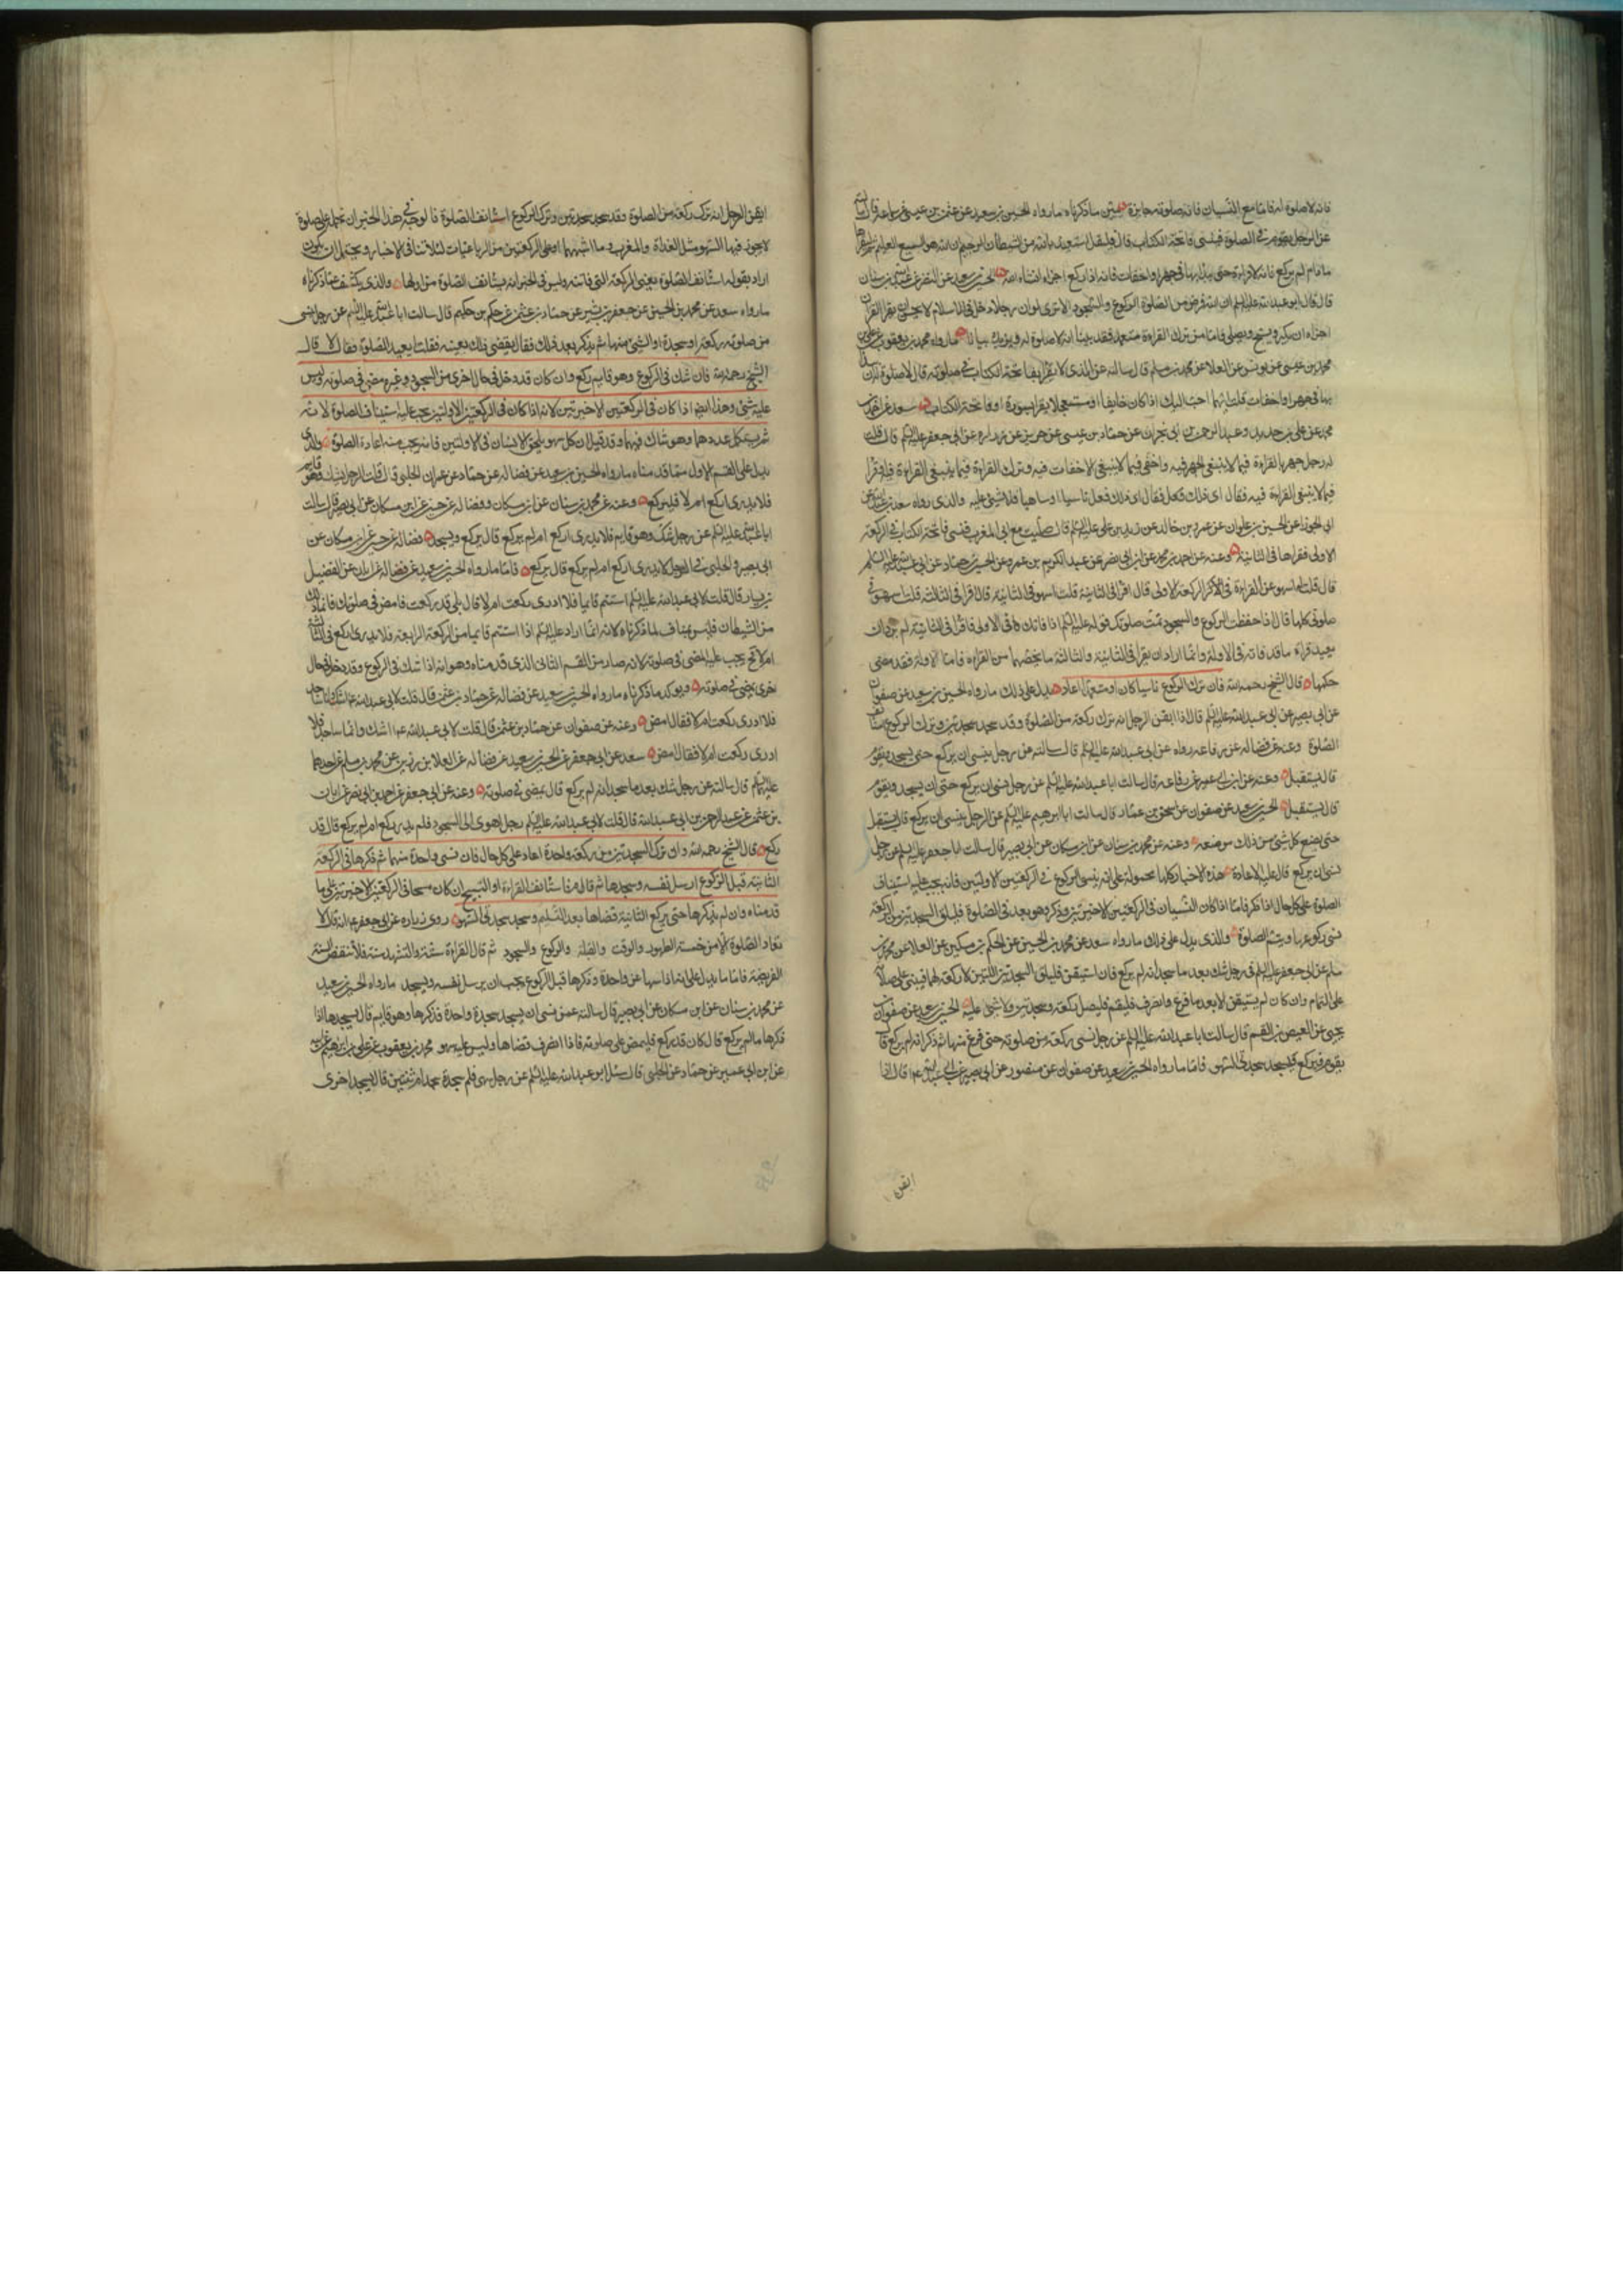 فانه لا صلوة له فاما مع النسيان فانه صلوته جايزة يبين ما ذكرناه ما رواه الحسين بن سعيد عن عثمن بن عيسى عن سماعة قال سالته
عن الرجل يقوم في الصلوة فينسى فاتحة الكتاب قال فليقل استعيذ بالله من الشيطان الرجيم ان الله هو السميع العليم ثم ليقراها
ما دام لم يركع فانه لا قراءة حتى يبدا بها في جهر او اخفات فانه اذا ركع اجزاه انشاء الله الحسين بن سعيد عن النضر عن عبدالله بن سنان
قال قال ابو عبدالله عليه السلم ان الله فرض من الصلوة الركوع والسجود الا ترى لو ان رجلا دخل في الاسلام لا يحسن ان يقرا القران
اجزاه ان يكبر ويسبح ويصلي فاما من ترك القراءة متعمدا فقد بينا انه لا صلوة له ويزيده بيانا ما رواه محمد بن يعقوب عن علي
محمد بن عيسى عن يونس عن العلا عن محمد بن مسلم قال سالته عن الذي لا يقرا بفاتحة الكتاب في صلوته قال لا صلوة له الا ان
بها في جهر او اخفات قلت ايهما احب اليك اذا كان خايفا او مستعجلا يقرا بسورة او فاتحة الكتاب سعد عن احمد بن
محمد عن علي بن حديد وعبد الرحمن بن ابي نجران عن حماد بن عيسى عن حريز عن زرارة عن ابي جعفر عليه السلم قال قلت
له رجل جهر بالقراءة فيما لا ينبغي الجهر فيه واخفى فيما لا ينبغي الاخفات فيه وترك القراءة فيما ينبغي القراءة فيه او قرا
فيما لا ينبغي القراءة فيه فقال اي ذلك فعل ناسيا او ساهيا فلا شئ عليه والذي رواه سعد بن عبدالله عن
ابي الجوزا عن الحسين بن علوان عن عمرو بن خالد عن زيد بن علي عليه السلم قال صليت مع ابي المغرب فنسي فاتحة الكتاب في الركعة
الاولى فقراها في الثانية وعنه عن احمد بن محمد عن ابن ابي نصر عن عبد الكريم بن عمرو عن الحسين بن حماد عن ابي عبدالله عليه السلم
قال قلت له اسهو عن القراءة في الركعة الاولى قال اقرا في الثانية قلت اسهو في الثانية قال اقرا في الثالثة قلت اسهو في
صلوتي كلها قال اذا حفظت الركوع والسجود تمت صلوتك قوله عليه السلم اذا فاتك في الاولى فاقرا في الثانية لم يرد ان
يعيد قراءة ما قد فاته في الاولة وانما اراد ان يقرا في الثانية والثالثة ما يخصهما من القراءة فاما الاولة فقد مضى
حكمها قال الشيخ رحمه الله فان ترك الركوع ناسيا كان او متعمدا اعاد يدل على ذلك ما رواه الحسين بن سعيد عن صفوان
عن ابي بصير عن ابي عبدالله عليه السلم قال اذا ايقن الرجل انه ترك ركعة من الصلوة وقد سجد سجدتين وترك الركوع استانف
الصلوة وعنه عن فضالة عن رفاعة رواه عن ابي عبدالله عليه السلم قال سالته عن رجل ينسى ان يركع حتى يسجد ويقوم
قال يستقبل وعنه عن ابن ابي عمير عن رفاعة قال سالت ابا عبدالله عليه السلم عن رجل نسي ان يركع حتى ان يسجد ويقوم
قال يستقبل الحسين بن سعيد عن صفوان عن اسحق بن عمار قال سالت ابا ابرهيم عليه السلم عن الرجل ينسى ان يركع قال يستقبل
حتى يضع كل شئ من ذلك موضعه وعنه عن محمد بن سنان عن ابن مسكان عن ابي بصير قال سالت ابا جعفر عليه السلم عن رجل
نسي ان يركع قال عليه الاعادة هذه الاخبار كلها محمولة على انه ينسى الركوع في الركعتين الاولتين فانه يجب عليه استيناف
الصلوة على كل حال اذا ذكر فاما اذا كان النسيان في الركعتين الاخيرتين وذكر وهو بعد في الصلوة فليلق السجدتين من الركعة
نسي ركوعها ويتم الصلوة والذي يدل على ذلك ما رواه سعد عن محمد بن الحسين عن الحكم بن مسكين عن العلا عن محمد بن
مسلم عن ابي جعفر عليه السلم في رجل شك بعد ما سجد انه لم يركع فان استيقن فليلق السجدتين اللتين لا ركعة لهما فيبني على صلاته
على التمام وان كان لم يستيقن الا بعد ما فرغ وانصرف فليقم فليصل ركعة وسجدتين ولا شئ عليه الحسين بن سعيد عن صفوان بن
يحيى عن العيص بن القسم قال سالت ابا عبدالله عليه السلم عن رجل نسي ركعة من صلوته حتى فرغ منها ثم ذكر انه لم يركع قال
يقوم فيركع فليسجد سجدتي السهو فاما ما رواه الحسين بن سعيد عن صفوان عن منصور عن ابي بصير عن ابي عبدالله ع قال اذا
ايقن
ايقن الرجل انه ترك ركعة من الصلوة وقد سجد سجدتين وترك الركوع استانف الصلوة فالوجه في هذا الخبر ان نحمله على صلوة
لا يجوز فيها السهو مثل الغداة والمغرب وما اشبههما او على الركعتين من الرباعيات لئلا تتنافى الاخبار ويحتمل ان يكون
اراد بقوله استانف الصلوة يعني الركعة التي فاتته وليس في الخبر انه يستانف الصلوة من اولها والذي يكشف عما ذكرناه
ما رواه سعد عن محمد بن الحسين عن جعفر بن بشير عن حماد بن عثمن عن حكم بن حكيم قال سالت ابا عبدالله عليه السلم عن رجل نسي
من صلوته ركعة او سجدة او الشئ منها ثم يذكر بعد ذلك فقال يقضي ذلك بعينه فقلت ايعيد الصلوة فقال لا قال
الشيخ رحمه الله فان شك في الركوع وهو قايم ركع وان كان قد دخل في حال اخرى من السجود وغيره مضى في صلوته وليس
عليه شئ وهذا ايضا اذا كان في الركعتين الاخيرتين لانه اذا كان في الركعتين الاولتين يجب عليه استيناف الصلوة لانه
لم يستكمل عددهما وهو شاك فيهما وقد قيل ان كل سهو يلحق الانسان في الاولتين فانه يجب منه اعادة الصلوة والذي
يدل على القسم الاول مما قدمناه ما رواه الحسين بن سعيد عن فضالة عن حماد عن عمران الحلبي قال قلت الرجل يشك وهو قايم
فلا يدري اركع ام لا قال فليركع وعنه عن محمد بن سنان عن ابن مسكان وفضالة عن حسين عن ابن مسكان عن ابي بصير قال سالت
ابا عبدالله عليه السلم عن رجل شك وهو قايم فلا يدري اركع ام لم يركع قال يركع ويسجد فضالة عن حسين عن ابن مسكان عن
ابي بصير والحلبي في الرجل لا يدري اركع ام لم يركع قال يركع فاما ما رواه الحسين بن سعيد عن فضالة عن ابان عن الفضيل
بن يسار قال قلت لابي عبدالله عليه السلم استتم قايما فلا ادري ركعت ام لا قال بلى قد ركعت فامض في صلوتك فانما ذلك
من الشيطان فليس بمناف لما ذكرناه لانه انما اراد عليه السلم اذا استتم قايما من الركعة الرابعة فلا يدري اركع في الثالثة
ام لا يجب عليه المضي في صلوته لانه صار من القسم الثاني الذي قدمناه وهو انه اذا شك في الركوع وقد دخل في حال
اخرى يمضي في صلوته ويؤكد ما ذكرناه ما رواه الحسين بن سعيد عن فضالة عن حماد بن عثمن قال قلت لابي عبدالله ع اشك وانا ساجد
فلا ادري ركعت ام لا فقال امض وعنه عن صفوان عن حماد بن عثمن قال قلت لابي عبدالله ع اشك وانا ساجد فلا
ادري ركعت ام لا فقال امض سعد عن ابي جعفر عن الحسين بن سعيد عن فضالة عن العلا بن رزين عن محمد بن مسلم عن احدهما
عليه السلم قال سالته عن رجل شك بعد ما سجد انه لم يركع قال يمضي في صلوته وعنه عن ابي جعفر عن احمد بن ابي نصر عن ابان
بن عثمن عن عبد الرحمن بن ابي عبدالله قال قلت لابي عبدالله عليه السلم رجل اهوى الى السجود فلم يدر اركع ام لم يركع قال قد
ركع قال الشيخ رحمه الله وان ترك السجدتين من ركعة واحدة اعاد على كل حال فان نسي واحدة منهما ثم ذكرها في الركعة
الثانية قبل الركوع ارسل نفسه وسجدها ثم قام فاستانف القراءة او التسبيح ان كان مسبحا في الركعتين الاخيرتين على ما
قدمناه وان لم يذكرها حتى يركع الثانية قضاها بعد التسليم وسجد سجدتي السهو روى زرارة عن ابي جعفر ع انه قال لا
تعاد الصلوة الا من خمسة الطهور والوقت والقبلة والركوع والسجود ثم قال القراءة سنة والتشهد سنة فلا تنقض السنة
الفريضة فاما ما يدل على انه اذا سها عن واحدة وذكرها قبل الركوع يجب ان يرسل نفسه ويسجد ما رواه الحسين بن سعيد
عن محمد بن سنان عن ابن مسكان عن ابي بصير قال سالته عمن نسي ان يسجد سجدة واحدة فذكرها وهو قايم قال يسجدها اذا
ذكرها ما لم يركع قال كان قد ركع فليمض على صلوته فاذا انصرف قضاها وليس عليه سهو محمد بن يعقوب عن علي بن ابرهيم عن ابيه
عن ابن ابي عمير عن حماد عن الحلبي قال سئل ابو عبدالله عليه السلم عن رجل سهى فلم سجدة سجد ام ثنتين قال يسجد اخرى